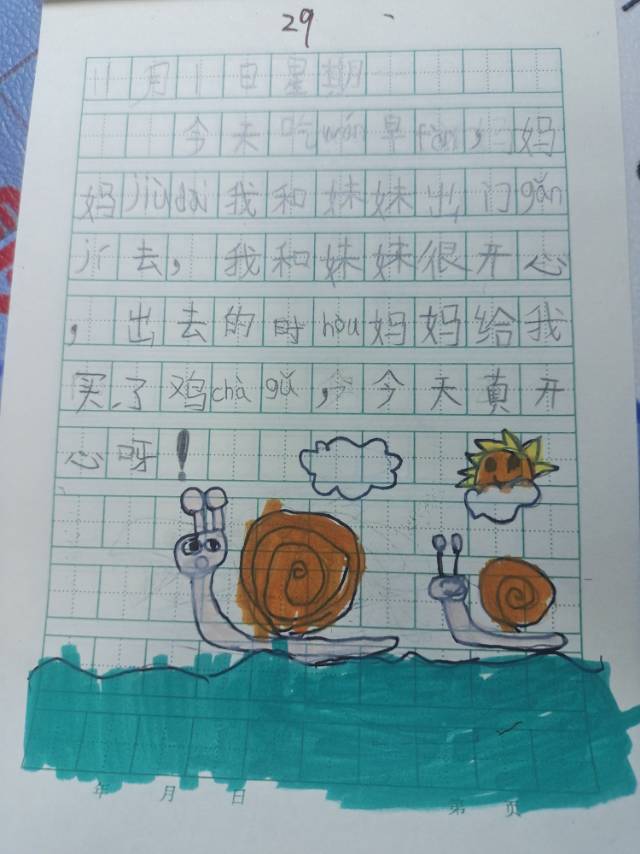 29
11月1日星期一
今天吃wán早fàn，妈
妈jiùdai我和妹妹出门gǎn
jí去，我和妹妹很开心
，出去的时hòu妈妈给我
买了鸡chà gǔ，今天真开
心呀！
年 月 日 第 页